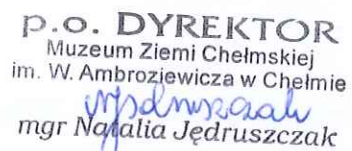 p.o. DYREKTOR
Muzeum Ziemi Chełmskiej
im. W. Ambroziewicza w Chełmie
mgr Natalia Jędruszczak